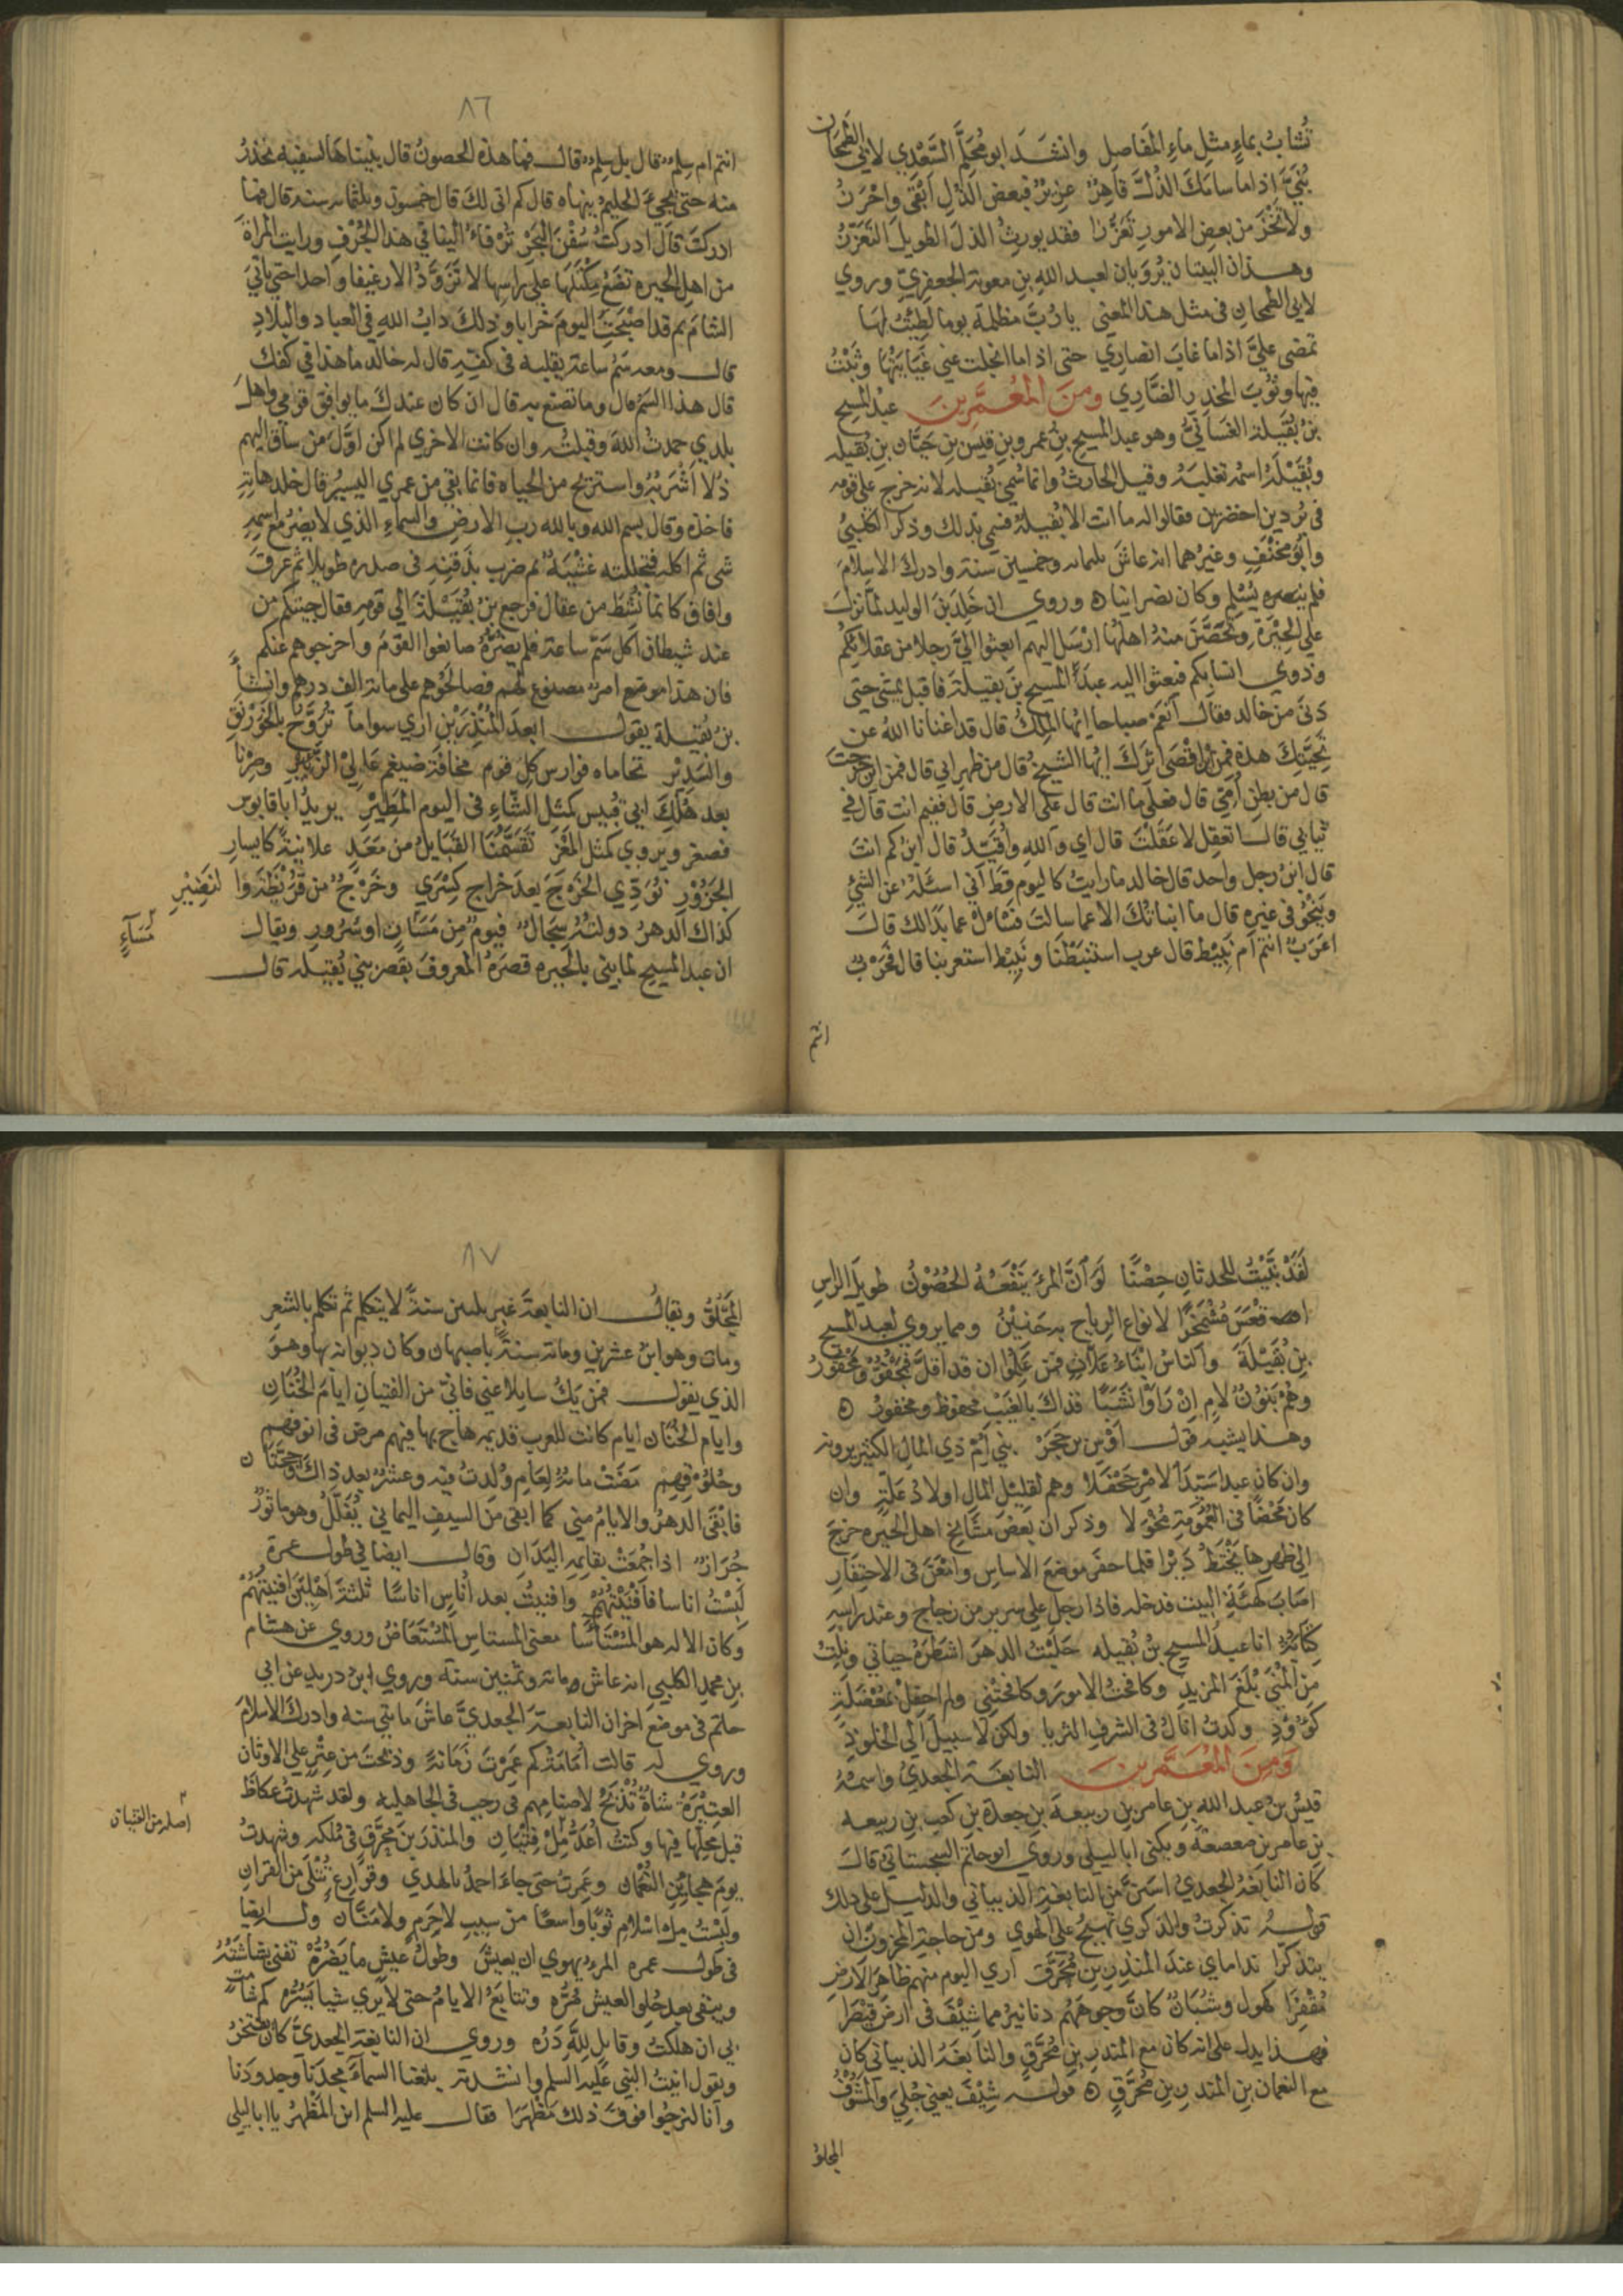 تُشَابُ بماءٍ مثل ماءِ المفَاصِل وانشَدَ ابو مُحَلَّم السَّعْدِي لابي الطمحان
بُنَيَّ اذا ما سامَكَ الذُلَّ قاهِرٌ عزيزٌ فبعض الذُلِ ابْقَى واحْرَزُ
ولا تَحْمَ من بعض الامورِ تعَزُّزا فقد يورِثُ الذلَ الطويلَ التَعَزّزُ
وهــذان البيتان يُرْوَيان لعبد اللهِ بنِ معوية الجعفريّ وروي
لابي الطمحان في مثل هذا المعنى يا رُبَّ مظلمة يوما لطِئْتُ لهَا
تمضى عليَّ اذا ما غابَ انصاري حتى اذا ما انجلت عني غَيَابَتُهَا وثَبْتُ
فيها وثُوبَ المخدِر الضّارِي ومِنَ المُعمَّرِين عبدُ المسيح
بنُ بُقَيْلة الغسّانيُّ وهو عبد المسيح بنُ عمرو بنِ قيس بن حيّان بنِ بُقيله
وبُقَيْلَةُ اسمه ثعلبَة وقيل الحارثُ وانما سُمّي بُقيله لانه خرج على قومه
في بُردين اخضرين فقالوا له ما انت الا بُقيلةٌ فسمي بذلك وذكر الكلبيُّ
وابُو مِخْنَفٍ وغيرُهما انه عاشَ ثلثمائه وخمسين سنة وادرك الاسلامَ
فلم يُسْلِم وكان نصرانيا ه وروي ان خَلِدَ بنَ الوليد لمّا نزلَ
علي الحِيْرَةِ وتحَصَّنَ منهُ اهلُها ارْسَل اليهم ابعثوا اليَّ رجلا من عقلائكُم
وذوي انسابِكم فبعثوا اليه عبدَ المسيحِ بنَ بقيلةَ فاقبل يمشي حتي
دَنَى من خالد فقال أنعِمْ صباحا ايُّها المَلِكُ قال قد اغنانا اللهُ عن
تحيَّتِكَ هذه فمِن اينَ اقْصَى اثرَكَ ايُّها الشيخُ قال من ظهر ابي قال فمن اين خرجتَ
قال من بطن أمّي قال فعلَى ما انت قال علَى الارضِ قال ففيم انت قال في
ثيابي قال اتعقِل لا عَقَلْتَ قال اي واللهِ واُقيّدُ قال ابنُ كم انتَ
قال ابنُ رجلٍ واحد قال خالد ما رايتُ كاليوم قطُ اني اسئَلهُ عن الشئ
وينْحُو في غيرِه قال ما انباتُكَ الا عما سالتَ فسَئلْ عما بَدَالَك قالَ
اعَرَبٌ انتم ام نَبيْط قال عرب استنبَطْنَا ونبيْط استعربنا قال فحَرْبٌ
انتم
٨٦
انتم ام سِلمٌ قال بل سِلمٌ قال فما هذه الحصونُ قال بنيناهَا لسفيه نحْذرُ
منه حتى يجيءَ الحليمُ ينهاه قال كم اتى لكَ قال خمسون وثلثمائه سنه قال فما
ادركتَ قال ادركتُ سُفُنَ البحْرِ تُرْفَاءُ الينا في هذا الجُرْفِ ورايتُ المراةَ
من اهل الحيره تضَعُ مِكْتَلَهَا علي راسِها لا تَزَوَّدُ الا رغيفا واحدا حتي ياتيَ
الشامَ ثم قد اصْبحَتِ اليومَ خرابا وذلكَ دابُ اللهِ في العبادِ والبلادِ
قال ومعه سَمُّ ساعة يقلبه في كفّهِ قال له خالد ما هذا في كفّك
قال هذا السَّمُ قال وما تصنع به قال ان كان عندكَ ما يوافق قومي واهلَ
بلدي حمدتُ اللهَ وقبلتُه وان كانت الاخري لم اكن اوَّلَ من ساقَ اليهم
ذُلا اَشْرَبُهُ واستَريح من الحياه فانما بقي من عمري اليسيرُ قال خلد هاتِهِ
فاخذه وقال بسم الله وبالله ربِ الارضِ والسماءِ الذي لا يضرُّ مع اسمهِ
شي ثم اكله فتجللته غَشْيَةٌ ثم ضرب بذقنِهِ في صدره طويلا ثم عرقَ
وافاق كانما نُشِطَ من عقال فرجع بنُ بُقَيْلَةَ الي قومِهِ فقال جيتكم من
عند شيطان اكل سَمَّ ساعة فلم يضرَّهُ صانعوا القومَ واخرجوهم عنكم
فان هذا موضع امرٌ مصنوع لهُم فصالحوهم على مائة الف درهم وانشأَ
بن بُقيلة يقول ابعدَ المُنْذِرَيْن اري سواما تُرَوَّحُ بالخَوَرْنَقِ
والسّدِيْر تحاماه فوارس كل قوم مخافَة ضيغم عَالِي الزَّئيرِ وصِرْنا
بعد هُلْكِ ابي قُبيس كمثلِ الشّاءِ في اليوم المطِيْرِ يريدُ ابا قابوس
فصغر ويروي كمثل المَعْزِ تَقسَّمُنَا القَبَايلُ من مَعَدٍ علانيةً كايسارِ
الجَزُوْرِ نُؤدِّي الخَرْجَ بعدَ خراجِ كِسْرَي وخَرْجٍ من قُرَيْظَةَ والنَضِيْرِ
كذاك الدهرُ دولتُهُ سِجَالٌ فيومٌ مِن مَسَانٍ او سُرُورٍ ويقال
ان عبد المسيحِ لما بنى بالحيره قصرَهُ المعروفَ بقصرِ بني بُقيله قال
مَسَآءٍ
لقَدْ بَنَيْتُ للحدثانِ حِصْنًا لَوَ انَّ المرءَ يَنْفَعُهُ الحُصُوْنُ طويلَ الراسِ
اقْعَسَ مُشْمَخرًّا لانواع الرياح به حَنِيْنُ ومما يروي لعبد المسيح
بن بُقَيْلَةَ والناسُ ابْنَاءُ عَلَّاتٍ فمَن عَلِمُوا ان قد اقَلَّ فمَجْفُوٌّ ومَحْقُورُ
وهُمْ بَنُوْنَ لامٍ اِنْ رَاوْا نَشَبًا فذاكَ بالغيْبِ محفوظٌ ومخفورُ ه
وهــذا يشبه قول اوْس بن حَجَرٍ بني اُمّ ذي المالِ الكثيرِ يرونه
وان كان عبدا سَيّدَ الامْرِ جَحْفَلًا وهم لقليلِ المالِ اولادُ عَلّةٍ وان
كان مَحْضًا في العُمُومَةِ مُخْوَلا وذكر ان بعضَ مشَايخ اهل الحِيره خرجَ
الي ظهرِها يَخْتَطُّ دَيْرًا فلما حفرَ موضعَ الاساسِ وامْعَنَ في الاحتفارِ
اصَابَ كهَيْئَةِ البيت فدخله فاذا رجل علي سرير من زجاج وعند راسِهِ
كِتَابَةٌ انا عبدُ المسيح بنُ بُقيله حَلَبْتُ الدهرَ اشطُرَهُ حياتي ونِلْتُ
مِنَ المُنَى بَلَغَ المزيدِ وكافحْتُ الامورَ وكافحتْنِي ولم احفِلْ بمُعْضَلةٍ
كؤوْدِ وكدتُ انالُ في الشرفِ الثريا ولكن لا سبيلَ الي الخلودِ
وَمِنَ المُعَمَّرين النابغَة الجعديُّ واسمهُ
قيسُ بنُ عبد الله بنِ عامرِ بنِ ربيعةَ بنِ جعدة بنِ كعبِ بنِ ربيعه
بن عامر بن صعصعة ويكنى ابا ليلي وروي ابو حاتم السجستانيُّ قالَ
كان النابغةُ الجعديُّ اسَنَّ من النابغةِ الذبياني والدليل على ذلك
قوله تذكرتُ والذكري تَهيجُ علي الهوَي ومن حاجةِ المحزونِ ان
يتذكرا نداماي عندَ المنذِرِ بنِ مُحَرَّقٍ اري اليوم منهم ظاهِرَ الارضِ
مُقْفِرَا كهول وشُبّانٌ كانَّ وجوهَهُم دنانيرُ مما شِيْفَ في ارضِ قَيْصَرَا
فهــذا يدل على انه كان مع المنذِرِ بنِ مُحرَّقٍ والنابغَةُ الذبياني كان
مع النعمان بنِ المنذرِ بنِ مُحَرَّقٍ ه قوله شِيْفَ يعني جُلِيَ والمشُوفُ
المجلوُ
٨٧
المَجْلوُّ ويقالُ ان النابغةَ غبر ثلثين سنةً لا يتكلم ثم تكلم بالشعرِ
ومات وهو ابنُ عشرين ومائة سنةٍ باصبهان وكان ديوانه بها وهــوَ
الذي يقول فمَن يَكُ سايلا عني فاني من الفتيانِ ايامَ الخُنَانِ
وايام الخُنَان ايام كانت للعرب قديمه هاج بها فيهم مرض في انوفهِم
وحُلُوْقِهِم مَضَتْ مائةٌ لِعامِ وُلِدتُ فيه وعشرٌ بعد ذاكَ وحَجّتَانِ
فابْقَى الدهرُ والايامُ مني كما ابقى من السيفِ اليماني يُفَلّلُ وهو ماثورٌ
جُرَازٌ اذا جُمِعَتْ بقايمه اليَدَانِ وقال ايضا في طول عمره
لَبِسْتُ اناسا فافنَيْتُهُمْ وافنيتُ بعد اُناسٍ اناسًا ثلثةَ اَهْلينَ افنيتُهُمْ
وكان الالهُ هو المُسْتَأسَا معنى المستاسِ المُسْتَعَاضُ وروي عن هشام
بنِ محمدٍ الكلبي انه عاش مائة وثمنين سنة وروي ابنُ دريدٍ عن ابي
حاتم في موضع اخر ان النابغةَ الجعديَّ عاشَ مائتي سنه وادركَ الاسلامَ
وروي له قالت اُمَامَةُ كم عَمِرْتَ زَمَانَةً وذبحتَ من عِتْرٍ علي الاوثان
العتِيْرَةُ شاةٌ تُذْبَحُ لاصنامِهم في رجبٍ في الجاهليه ولقد شهدتُ عكاظَ
قبل مَحِلّها فيها وكنتُ اُعَدُّ مِلْ فِتْيَانِ والمنذرَ بنَ مُحرَّقٍ في مُلكه وشهدتُ
يومَ هجَايِنِ النُّعْمان وعَمِرتُ حتى جاءَ احمدُ بالهدي وقوَارِع تُتْلَي من القرانِ
ولَبِسْتُ مِلْ اسْلامِ ثوبًا واسعًا من سيبِ لا حَرِمٍ ولا مَنَّان وله ايضا
في طول عمره المرءُ يهوي ان يعيشَ وطولُ عَيشٍ ما يَضُرُّهْ تفنى بشاشَتُهُ
ويبقى بعد حُلو العيش مُرُّه وتتابعُ الايامُ حتى لا يَري شيا يَسُرُّه كم شامتٍ
بي ان هلكتُ وقايلٍ للهِ دَرُّه وروي ان النابغةَ الجعديَّ كان يفتخرُ
ويقول اتيتُ النبي عليه السلم وانشدته بلغنا السماءَ مجدَنا وجدودَنا
وانا لنرجُوا فوقَ ذلك مَظْهَرَا فقال عليه السلم اين المَظْهرُ يا ابا ليلي
اصله من الفتيان